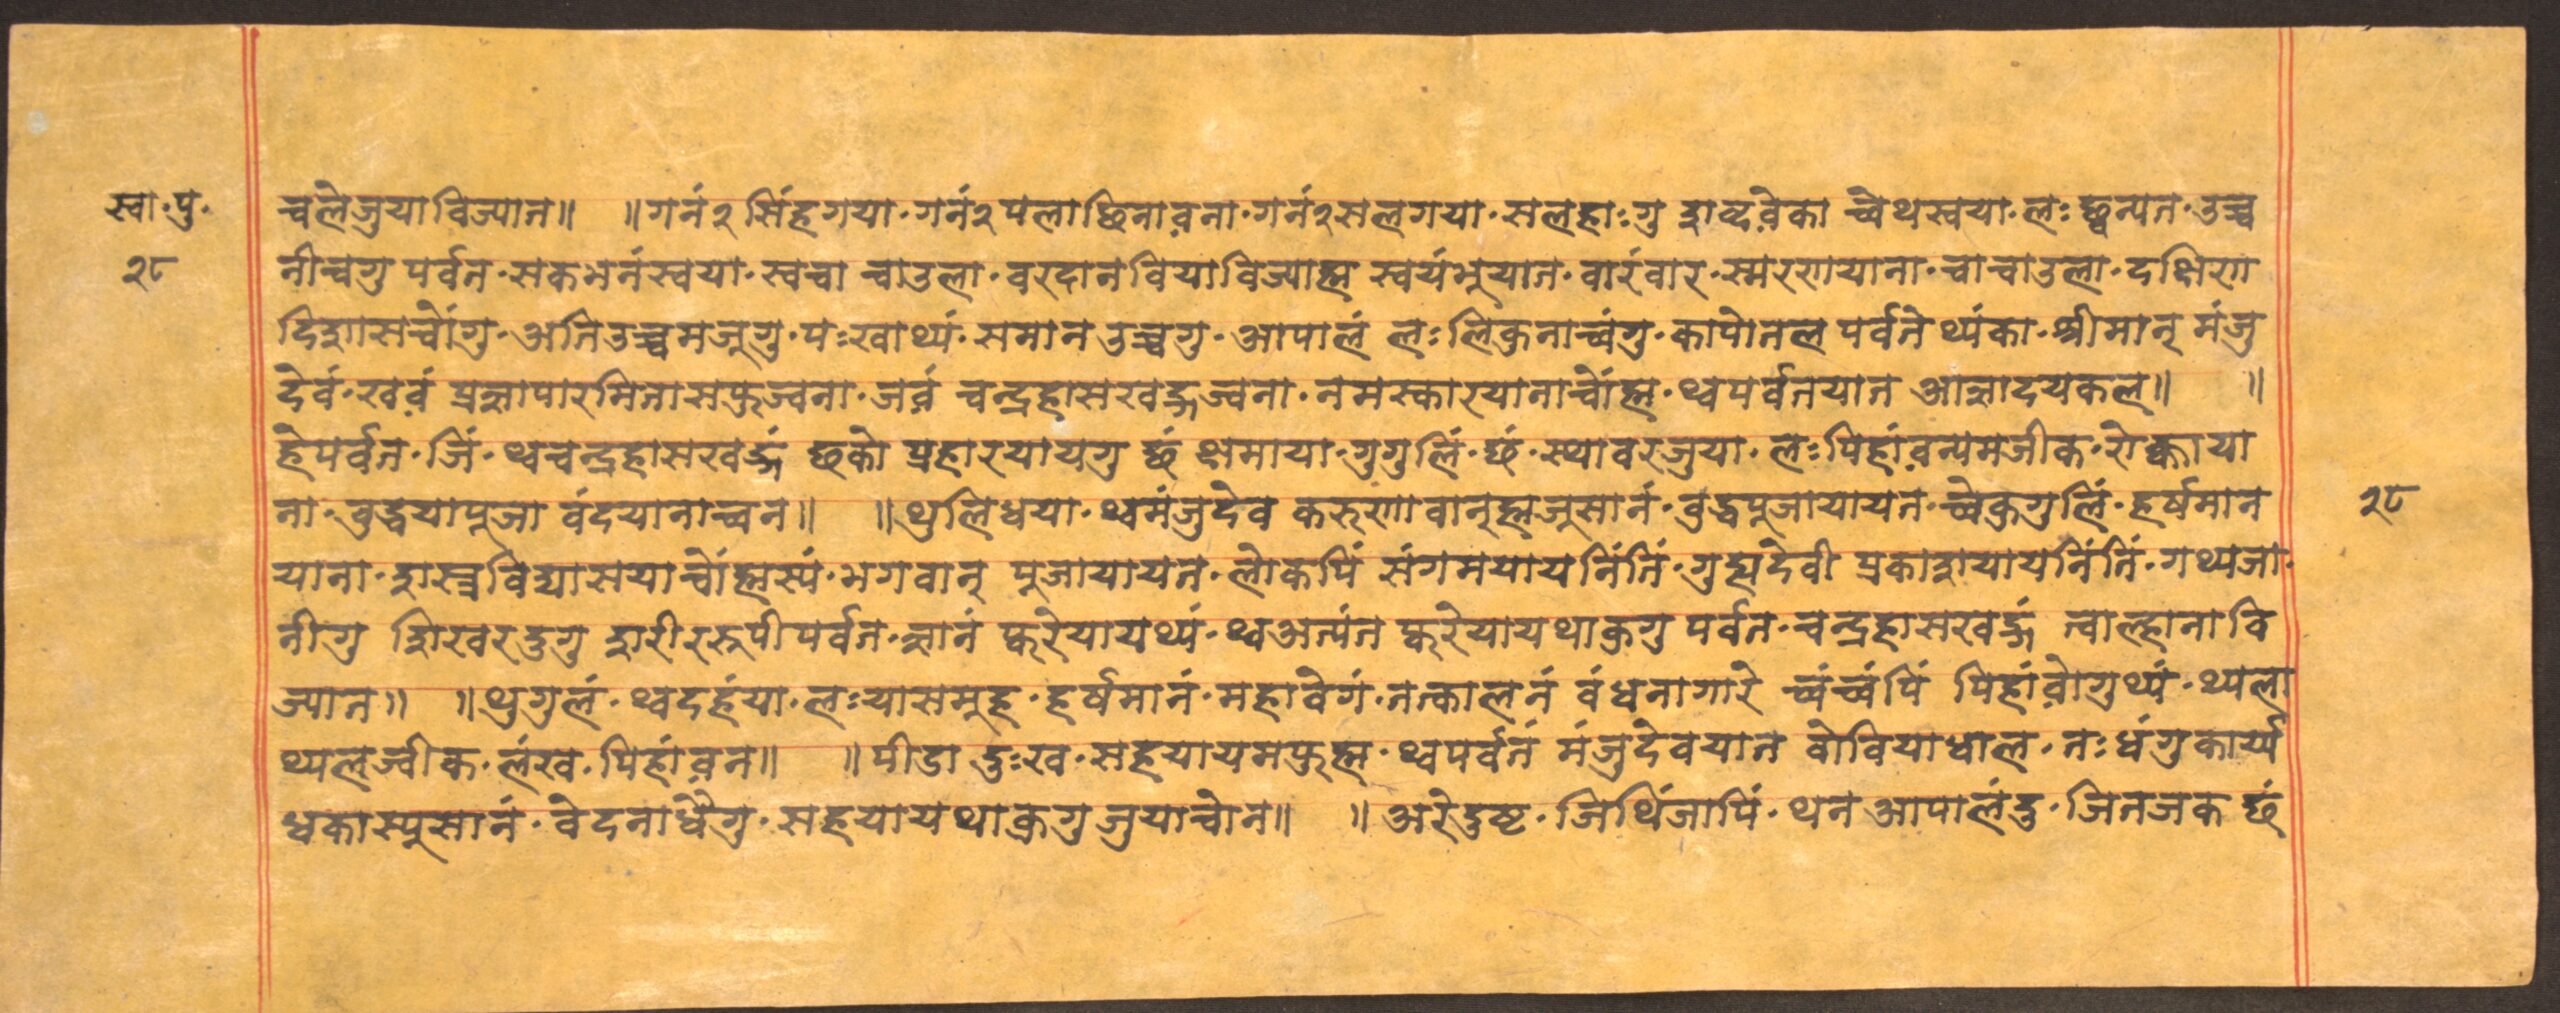 स्वा॰पु॰
२८
च्वलेजुयाविज्यात॥ ॥गनं२ सिंहगया॰गनं२पलाछिनाव़ना॰गनं२सलगया॰सलहाःगु शब्दव़ेका च्वेथस्वया॰लः छ्वन्यत॰उच्च
नीच्वगु पर्वत॰सकभनंस्वया॰स्वच्वा च्वाउला॰वरदानवियाविज्याह्म स्वयंभूयात॰वारंवार॰स्मरणयाना॰च्वाच्वाउला॰दक्षिण
दिशासच्वोंगु॰अतिउच्चमजूगु॰पःखाथ्यं॰समान उच्चगु॰आपालं लः लिकुनाच्वंगु॰कापोतल पर्वते थ्यंका॰श्रीमान् मंजु
देवं॰खव़ं प्रज्ञापारमितासफुज्वना॰जव़ं चन्द्रहासखड्गज्वना॰नमस्कारयानाच्वोंह्म॰थ्वपर्वतयात आज्ञादयकल॥ ॥
हेपर्वत॰जिं॰थ्वचन्द्रहासखड्गं छको प्रहारयायगु छं क्षमाया॰गुगुलिं॰छं॰स्थावरजुया॰लःपिहांव़न्यमजीक॰रोक्कायाया
ना॰वुद्धयापूजा वंदयानाच्वन॥ ॥थुलिधया॰थ्वमंजुदेव करुणावान्ह्मजुसानं॰वुद्धपूजायायत॰च्वेकुगुलिं॰हर्षमान
याना॰शास्त्रविद्यासयाच्वोंह्मस्यं॰भगवान् पूजायायत॰लोकपिं संगमयायनिंतिं॰गुह्यदेवी प्रकाशयायनिंतिं॰गथ्यजा॰
नीगु शिखरदुगु शरीररुपीपर्वत॰ज्ञानं फुकेयायथ्यं॰थ्वअत्यंत फुकेयायथाकुगु पर्वत॰चन्द्रहासखड्गं त्वाल्हानावि
ज्यात॥ ॥थुगुलं॰थ्वदहंया॰लःयासमूह॰हर्षमानं॰महावेगं॰तत्कालनं वंधनागारे च्वंच्वंपिं पिहांव़ोगुथ्यं॰थ्यला
थ्यलज्वीक॰लंख॰पिहांव़न॥ ॥पीडा दुःख॰सहयायमफुह्म॰थ्वपर्वतं मंजुदेवयात वोवियाधाल॰तःधंगुकार्य्य
धकास्यूसानं॰वेदनाधैगु॰सहयायथाकुगुजुयाच्वोन॥ ॥अरेदुष्ट॰जिथिंजापिं॰थन आपालंदु॰जितजक छं
२८